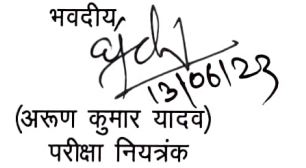 भवदीय
13/06/23
(अरूण कुमार यादव)
परीक्षा नियत्रंक